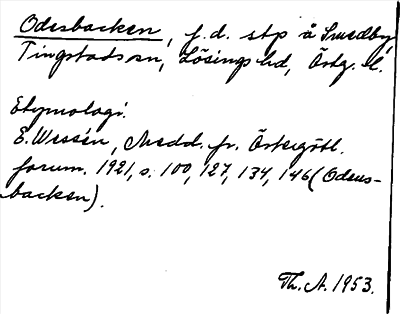 Odesbacken, f.d. stp å Smedby,
Tingstads sn, Lösings hd, Östg. l.
Etymologi.
E. Wessén, Medd. fr. Östergötl.
fornm. 1921, s. 100, 127, 134, 146 (Odens-
backen).
Th. A. 1953.